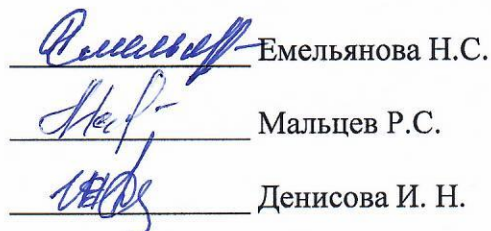 Емельянова Н.С.
Мальцев Р.С.
Денисова И. Н.